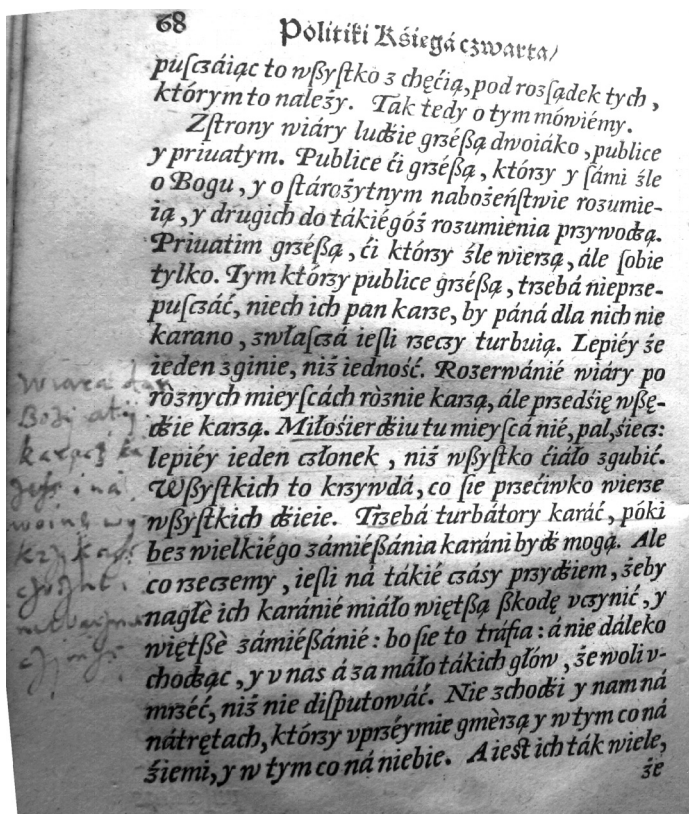 68
Politiki Kśięgá czwarta/
puſczáiąc to wßyſtko z chęćią, pod rozſądek tych,
którym to należy. Tak tedy o tym mówiémy.
Zſtrony wiáry ludźie grzéßą dwoiáko, publice
y priuatym. Publice ći grzéßą, którzy y ſámi źle
o Bogu, y o ſtárożytnym nabożeńſtwie rozumie-
ią, y drugich do tákiégóż rozumienia przywodzą.
Priuatim grzéßą, ći którzy źle wierzą, ále ſobie
tylko. Tym którzy publice grzéßą, trzebá nieprze-
puſczáć, niech ich pan karze, by páná dla nich nie
karano, zwłaſczá ieſli rzeczy turbuią. Lepiéy że
ieden zginie, niż iedność. Rozerwánié wiáry po
ròznych mieyſcách ròznie karzą, ále przedśię wßę-
dźie karzą. Miłośierdźiu tu mieyſcá nié, pal, śiecz:
lepiéy ieden członek, niż wßyſtko ćiáło zgubić.
Wßyſtkich to krzywdá, co ſie przećiwko wierze
wßyſtkich dźieie. Trzebá turbátory karáć, póki
bez wielkiégo zámiéßánia karáni bydź mogą. Ale
co rzeczemy, ieſli ná tákié czásy przydźiem, żeby
nagłè ich karánié miáło więtßą ßkodę vczynić, y
więtßè zámiéßánié: bo ſie to tráfia: á nie dáleko
chodząc, y v nas á za máło tákich głów, że woli v-
mrzéć, niż nie diſputowáć. Nie zchodźi y nam ná
nátrętach, którzy vprzéymie gmèrzą y w tym co ná
źiemi, y w tym co ná niebie. A ieſt ich ták wiele,
że